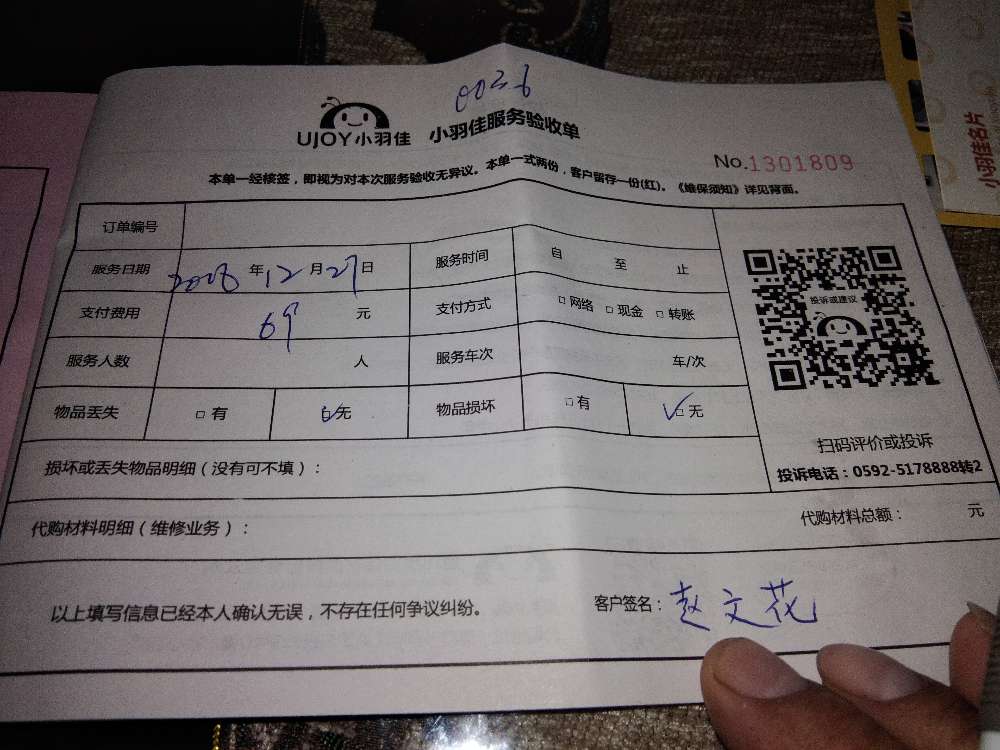 0026
UJOY小羽佳 小羽佳服务验收单
No.1301809
本单一经核签，即视为对本次服务验收无异议。本单一式两份，客户留存一份(红)。《维保须知》详见背面。
订单编号
服务日期 2018 年 12 月 27 日 服务时间 自 至 止
支付费用 69 元 支付方式 □ 网络 □ 现金 □ 转账
服务人数 人 服务车次 车/次
物品丢失 □ 有 ☑ 无 物品损坏 □ 有 ☑ 无
投诉或建议
扫码评价或投诉
投诉电话：0592-5178888转2
损坏或丢失物品明细（没有可不填）：
代购材料明细（维修业务）： 代购材料总额： 元
以上填写信息已经本人确认无误，不存在任何争议纠纷。 客户签名：赵文花
小羽佳名片